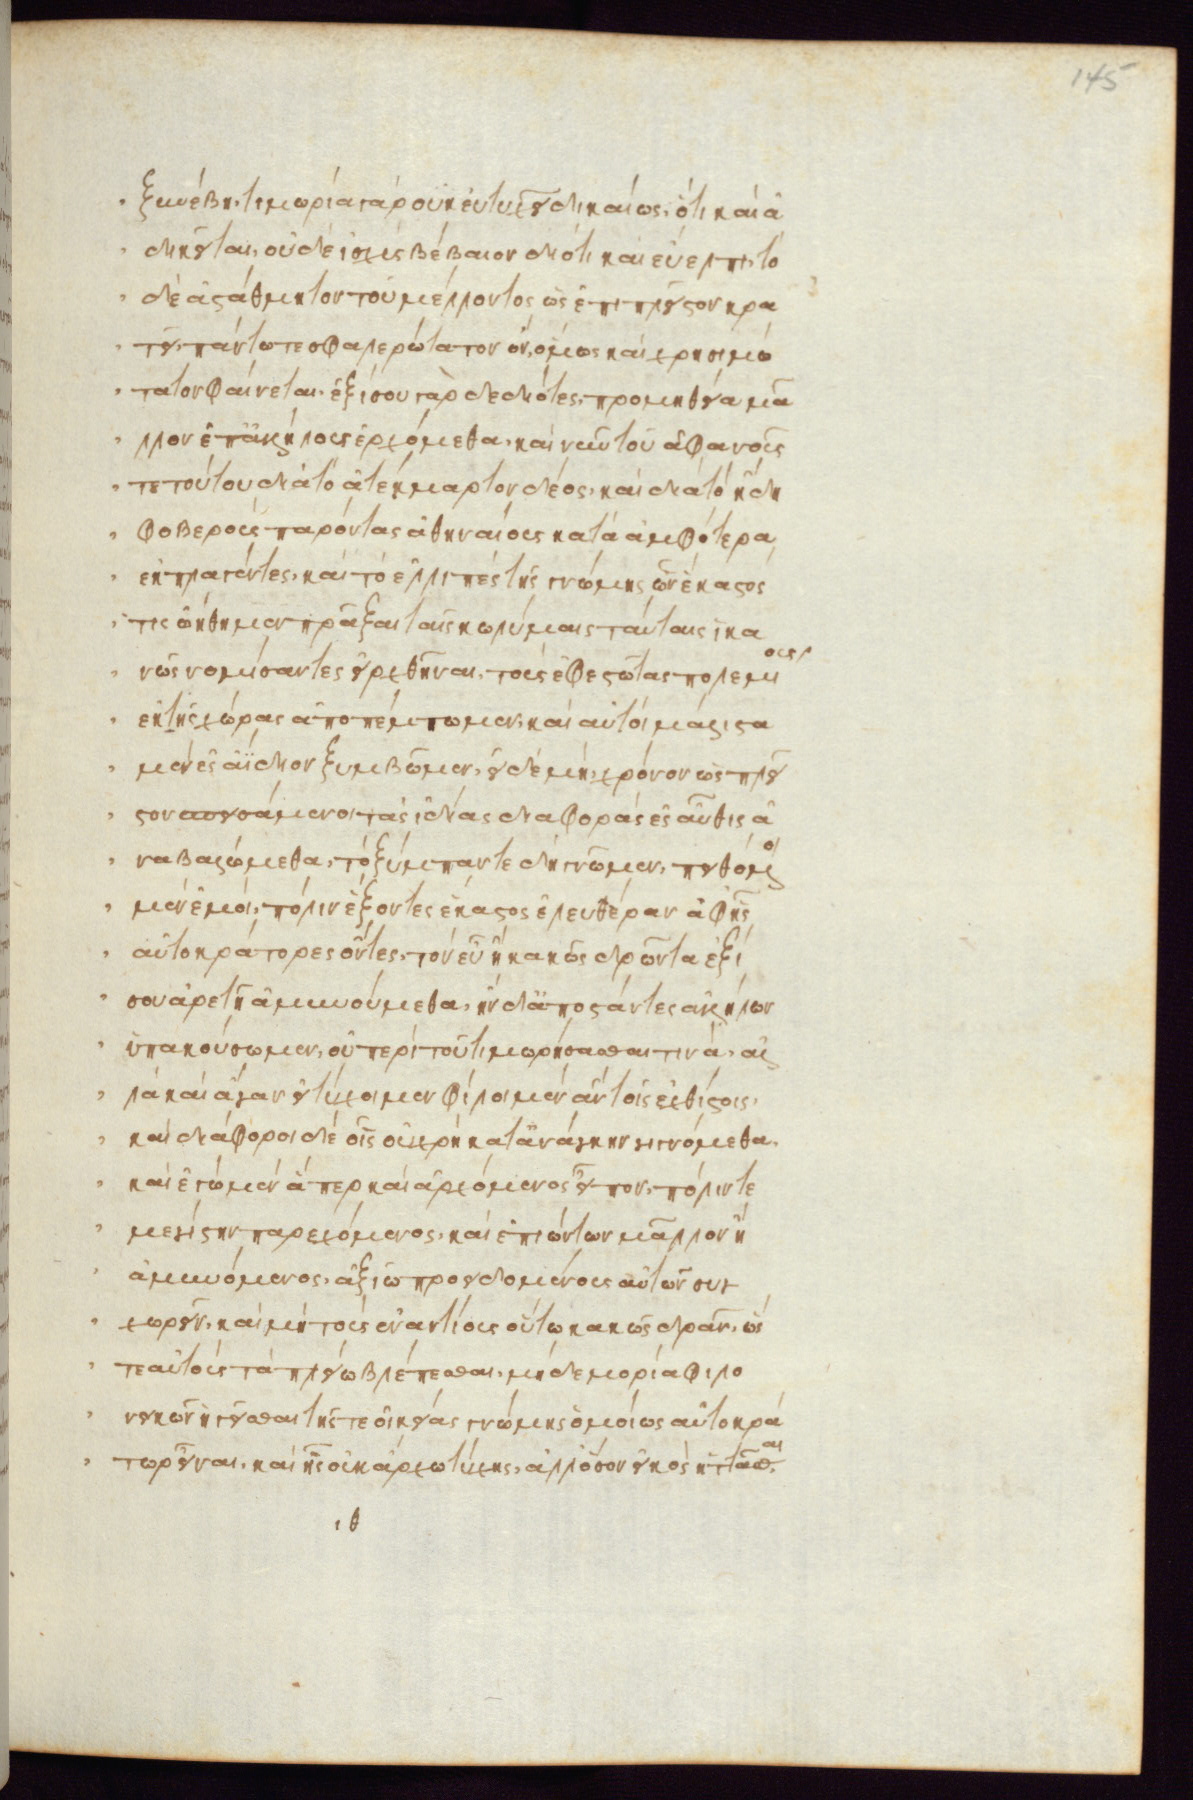 ξυνέβη. τιμωρία γὰρ οὐκ εὐτυχεῖ δικαίως, ὅτι καὶ ἀ
δικεῖται. οὐδὲ ἰσχὺς βέβαιον διότι καὶ εὔελπι, τὸ
δὲ ἀστάθμητον τοῦ μέλλοντος ὡς ἐπὶ πλεῖστον κρα
τεῖ, πάντων τε σφαλερώτατον ὂν, ὅμως καὶ χρησιμώ
τατον φαίνεται. ἐξίσου γὰρ δεδιότες, προμηθεία μᾶ
λλον ἐπ' ἀλλήλους ἐρχόμεθα. καὶ νῦν τοῦ ἀφανοῦς
τε τούτου διὰ τὸ ἀτέκμαρτον δέος, καὶ διὰ τὸ ἤδη
φοβεροὺς παρόντας ἀθηναίους κατὰ ἀμφότερα
ἐκπλαγέντες, καὶ τὸ ἐλλιπὲς τῆς γνώμης ὧν ἕκαστός
τις ᾠήθημεν πρᾶξαι ταῖς κωλύμαις ταύταις ἱκα
νῶς νομίσαντες εἰρχθῆναι, τοὺς ἐφεστῶτας πολεμίους
ἐκ τῆς χώρας ἀποπέμπωμεν, καὶ αὐτοὶ μάλιστα
μὲν ἐς ἀΐδιον ξυμβῶμεν, εἰ δὲ μὴ, χρόνον ὡς πλεῖ
στον σπεισάμενοι τὰς ἰδίας διαφορὰς ἐς αὖθις ἀ
ναβαλώμεθα, τὸ ξύμπαν τε δὴ γνῶμεν, πειθόμενοι
μὲν ἐμοὶ, πόλιν ἕξοντες ἕκαστος ἐλευθέραν ἀφ' ἧς
αὐτοκράτορες ὄντες, τὸν εὖ ἢ κακῶς δρῶντα ἐξί
σου ἀρετῇ ἀμυνούμεθα, ἢν δ' ἀπιστάντες ἀλλήλων
ὑπακούσωμεν, οὐ περὶ τοῦ τιμωρήσασθαι τινὰ, ἀλ
λὰ καὶ ἄγαν εἰ τύχοιμεν φίλοι μὲν ἂν τοῖς ἐχθίστοις,
καὶ διάφοροι δὲ οἷς οὐ χρὴ κατ' ἀνάγκην γιγνόμεθα.
καὶ ἐγὼ μὲν ἅπερ καὶ ἀρχόμενος εἶπον, πόλιν τε
μεγίστην παρεχόμενος, καὶ ἐπιὼν τῳ μᾶλλον ἢ
ἀμυνόμενος, ἀξιῶ προειδομένους αὐτῶν συγ
χωρεῖν, καὶ μὴ τοὺς ἐναντίους οὕτω κακῶς δρᾶν, ὥς
τε αὐτοὺς τὰ πλείω βλάπτεσθαι, μηδὲ μορία φιλο
νεικῶν ἡγεῖσθαι τῆς τε οἰκείας γνώμης ὁμοίως αὐτοκρά
τωρ εἶναι, καὶ ἧς οὐκ ἄρχω τύχης, ἀλλ' ὅσον εἰκὸς ἡττᾶσθαι.
ιθ
145